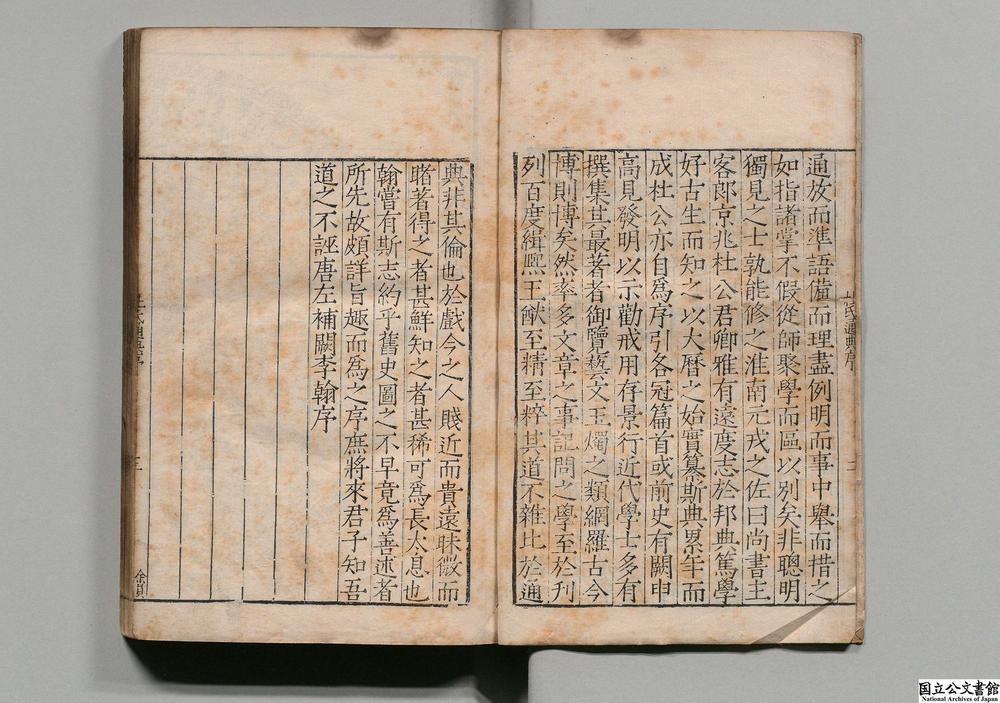 通放而準語備而理盡例明而事中舉而措之
如指諸掌不假從師聚學而區以別矣非聰明
獨見之士孰能修之淮南元戎之佐曰尚書主
客郎京兆杜公君卿雅有遠度志於邦典篤學
好古生而知之以大曆之始實纂斯典累年而
成杜公亦自爲序引各冠篇首或前史有闕申
高見發明以示勸戒用存景行近代學士多有
撰集其最著者御覽藝文玉燭之類網羅古今
博則博矣然率多文章之事記問之學至於刊
列百度緝熙王猷至精至粹其道不雜比於通
典非其倫也於戲今之人賤近而貴遠昧微而
睹著得之者甚鮮知之者甚稀可爲長太息也
翰嘗有斯志約乎舊史圖之不早竟爲善述者
所先故頗詳旨趣而爲之序庶將來君子知吾
道之不誣唐左補闕李翰序
氏通典序
二
三
国立公文書館
National Archives of Japan